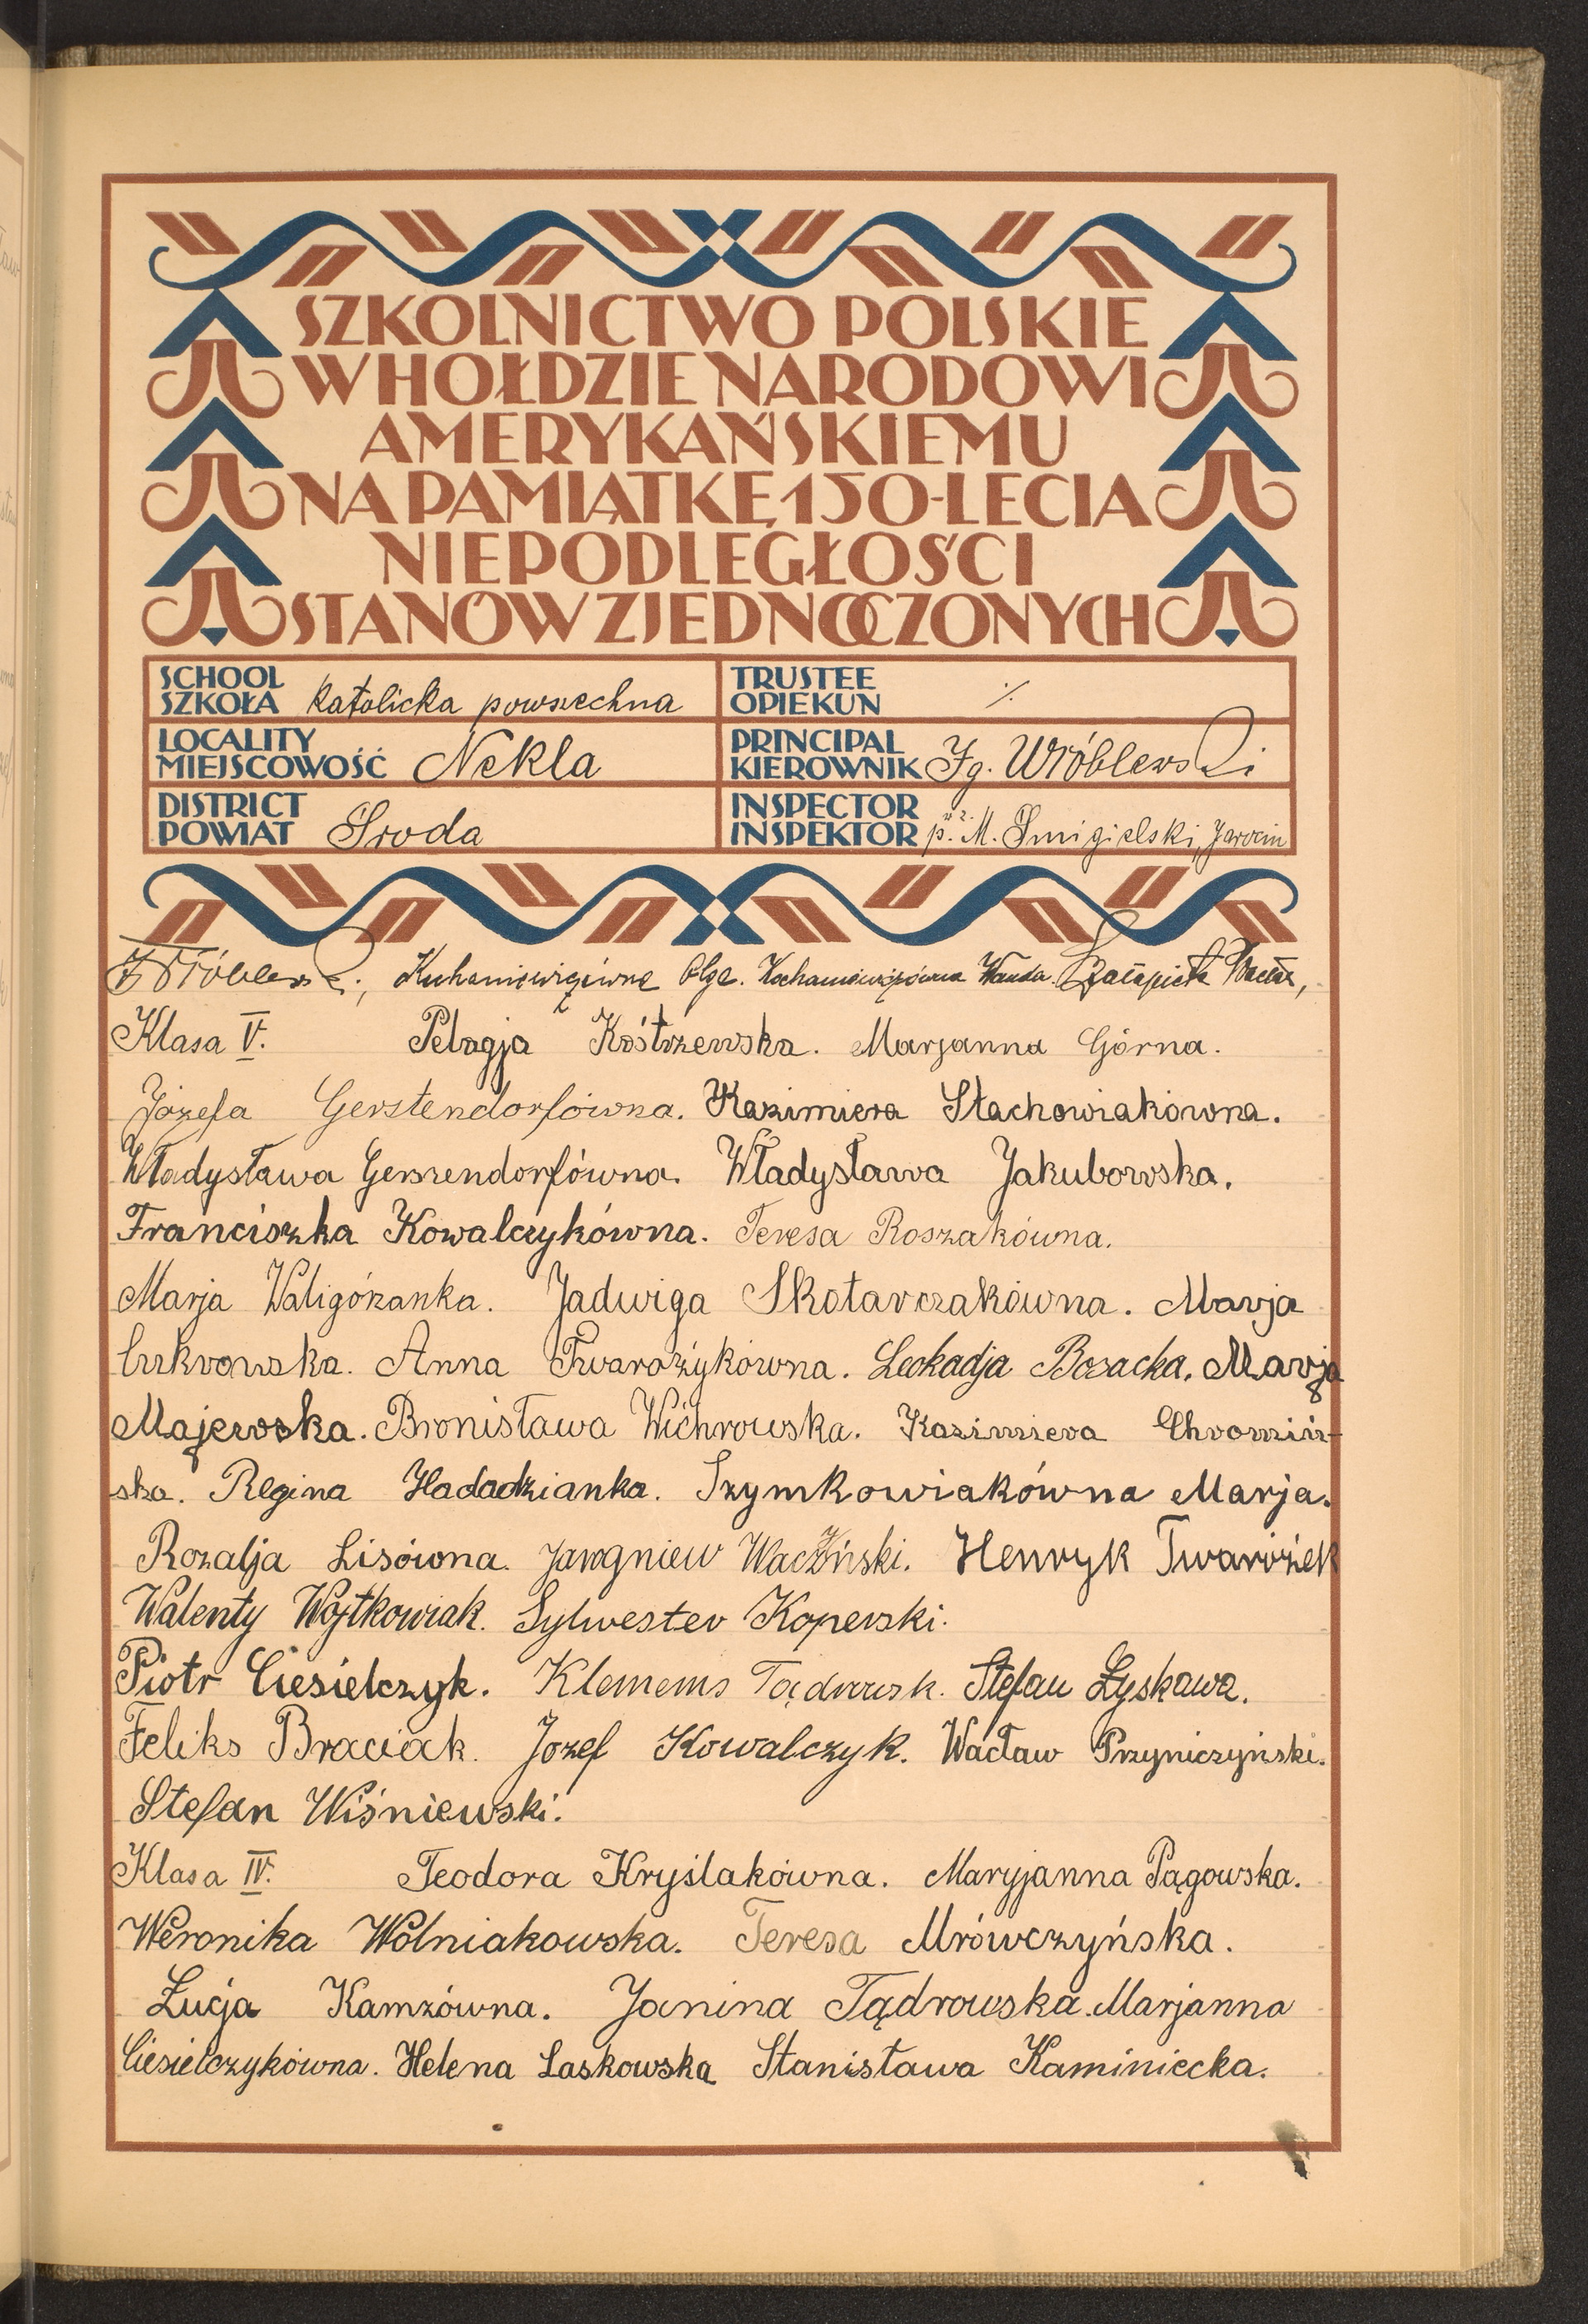 SZKOLNICTWO POLSKIE
W HOŁDZIE NARODOWI
AMERYKAŃSKIEMU
NA PAMIĄTKĘ 150-LECIA
NIEPODLEGŁOŚCI
STANÓW ZJEDNOCZONYCH
SCHOOL
SZKOŁA Katolicka powszechna
TRUSTEE
OPIEKUN ./.
LOCALITY
MIEJSCOWOŚĆ Nekla
PRINCIPAL
KIEROWNIK Ig. Wróblewski
DISTRICT
POWIAT Środa
INSPECTOR
INSPEKTOR p. M. Smigielski, Jarocin
I Wróblewski, Olga. Wanda.
Klasa V. Pelagja Kóstrzewska. Marjanna Górna.
Józefa Gerstendorfówna. Kazimiera Stachowiakówna.
Władysława Gerszendorfówna. Władysława Jakubowska.
Franciszka Kowalczykówna. Teresa Roszakówna.
Marja Waligórzanka. Jadwiga Skotarczakówna. Marja
Cukrowska. Anna Twarożykówna. Leokadja Bosacka. Marja
Majewska. Bronisława Wichrowska. Kazimiera Chromiń-
ska. Regina Hadadzianka. Szymkowiakówna Marja.
Rozalja Lisówna. Jarogniew Henryk Twarożek
Walenty Wojtkowiak. Sylwester Koperski.
Piotr Ciesielczyk. Klemens Tądrowsk. Stefan Łyskawa.
Feliks Braciak. Jozef Kowalczyk. Wacław Przyniczyński.
Stefan Wiśniewski.
Klasa IV. Teodora Kryślakówna. Maryjanna Pągowska.
Weronika Wolniakowska. Teresa Mrówczyńska.
Łucja Kamzówna. Janina Tądrowska. Marjanna
Ciesielczykówna. Helena Laskowska Stanisława Kaminiecka.